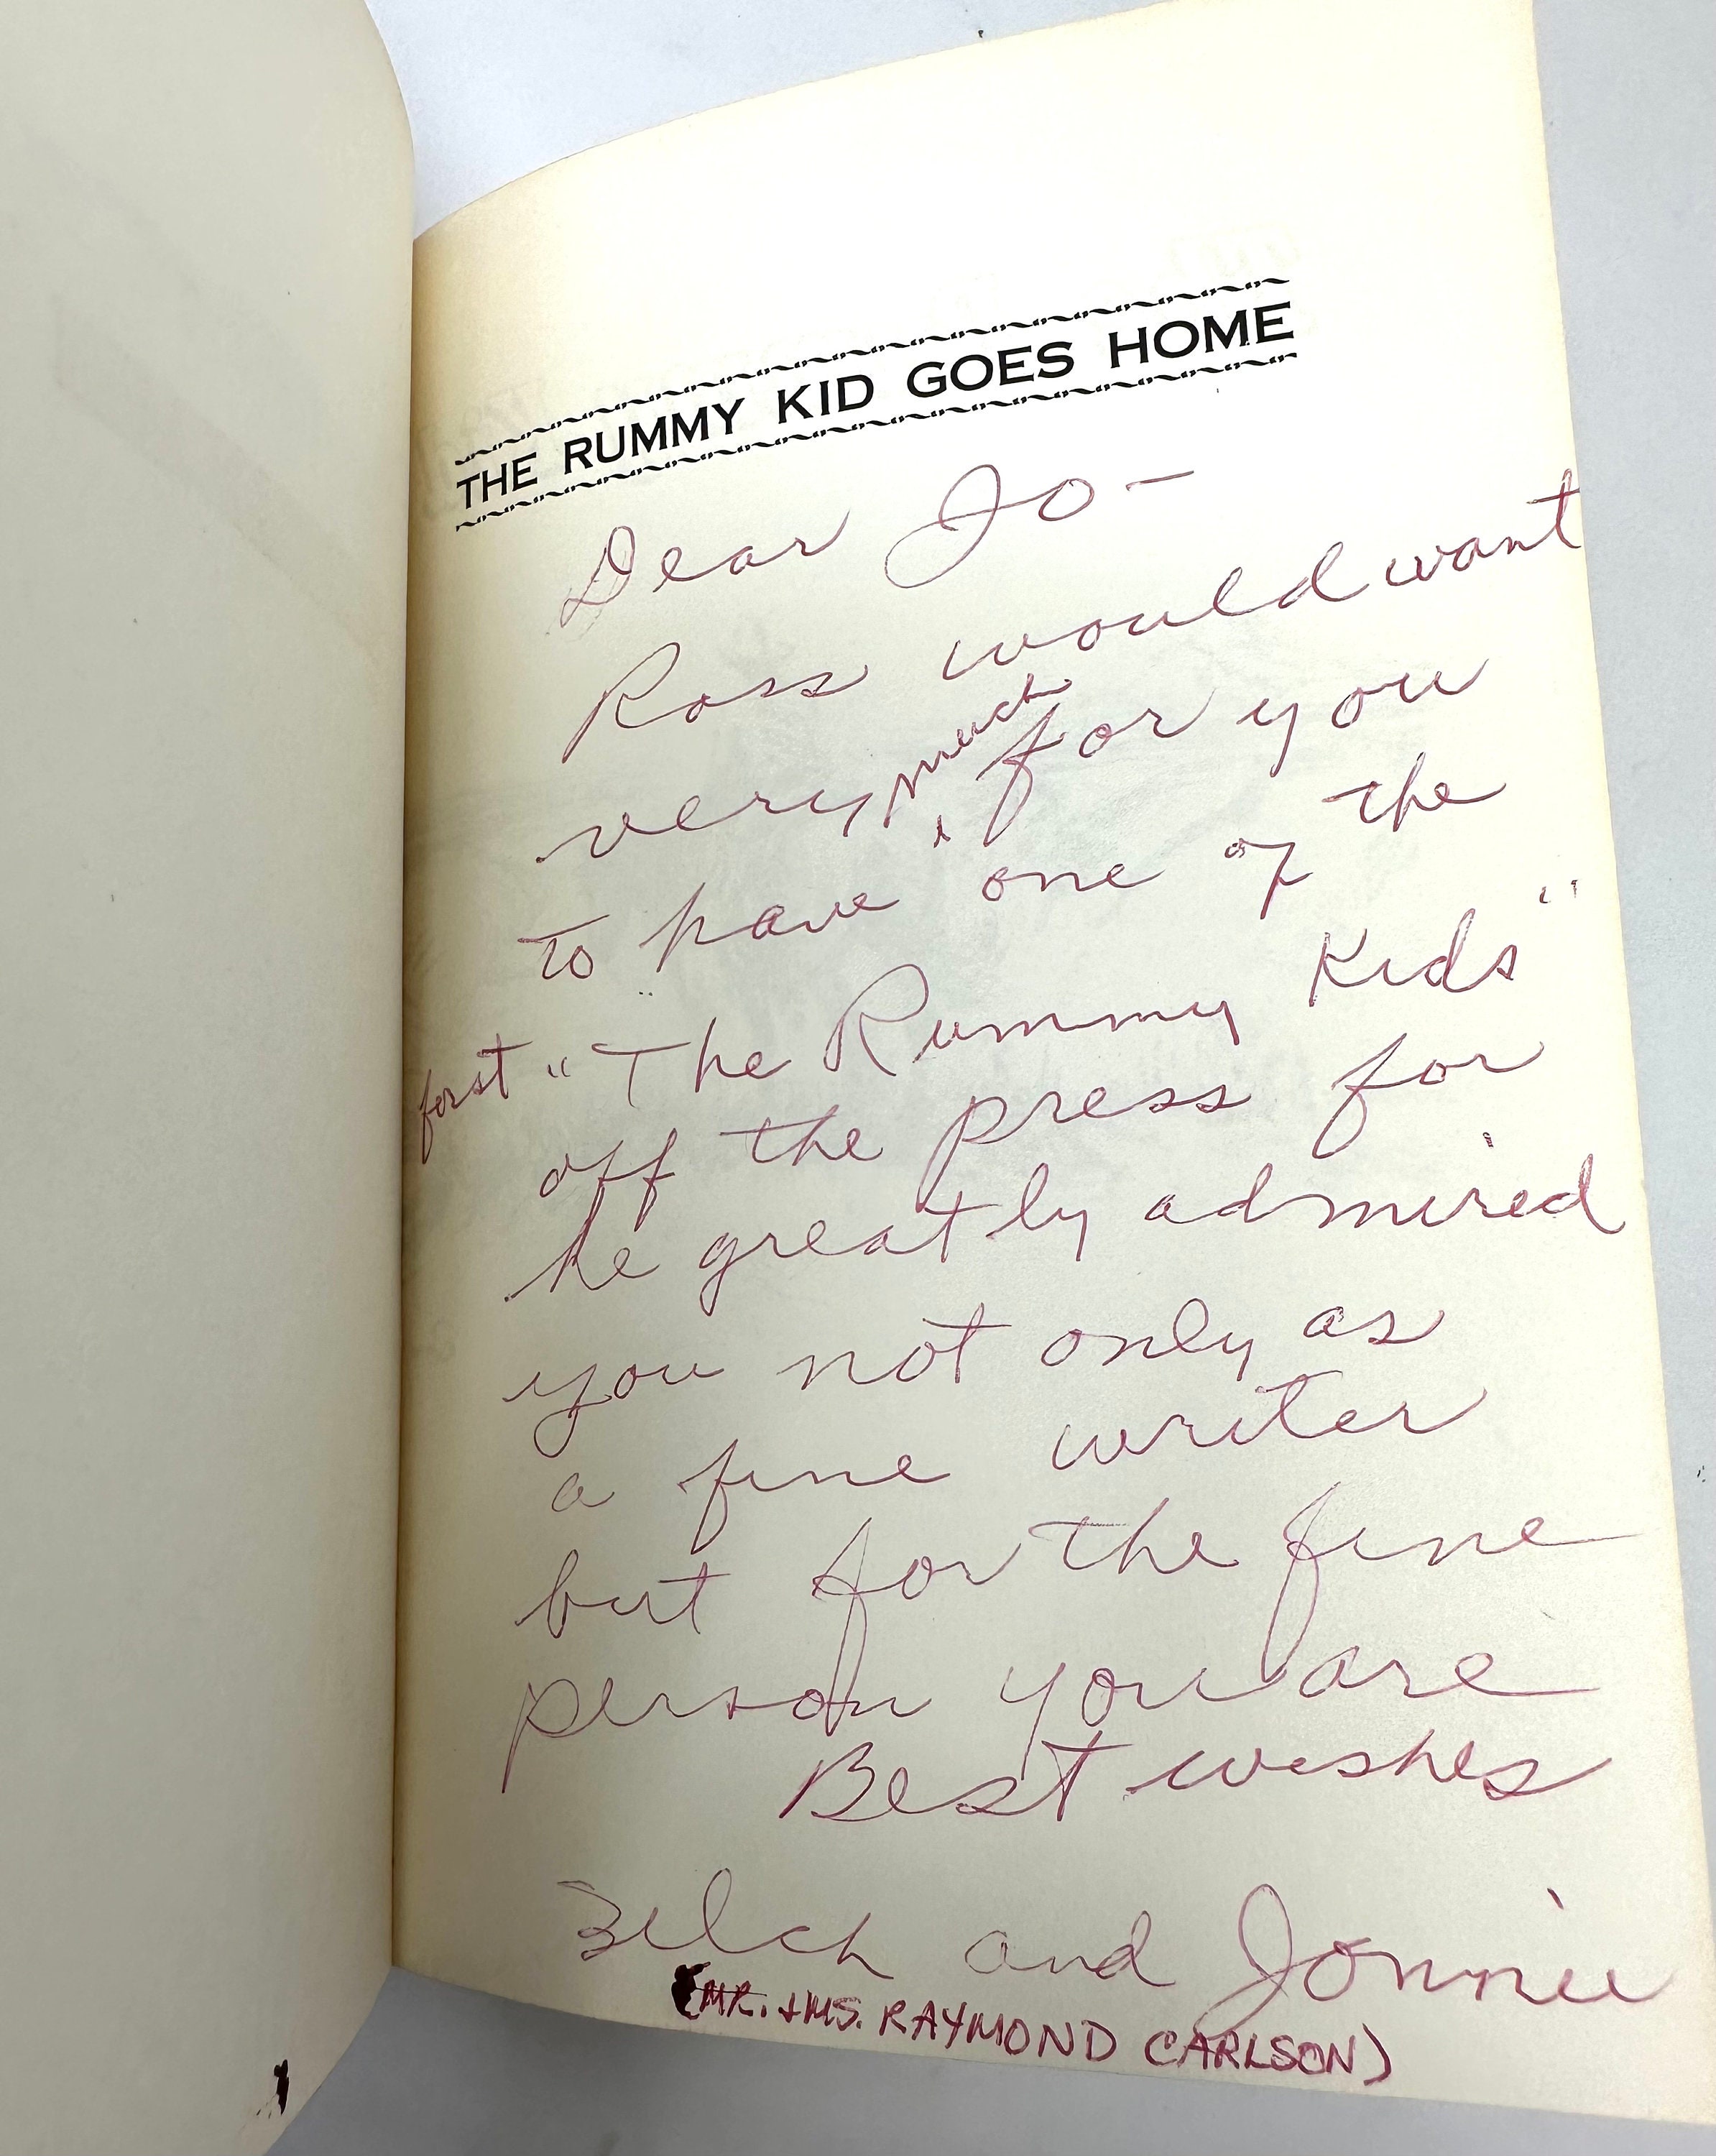 THE RUMMY KID GOES HOME
Dear Jo -
Ross would want
very much for you
to have one of the
first "The Rummy Kids"
off the press for
he greatly admired
you not only as
a fine writer
but for the fine
person you are
Best wishes
and Jonnie
(MR. + MS. RAYMOND CARLSON)